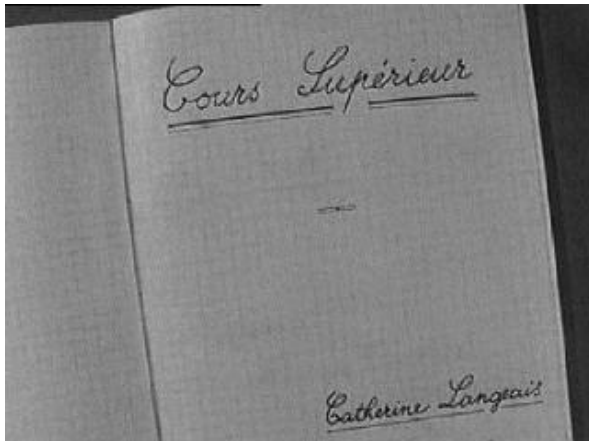 Cours Supérieur
Catherine Langeais